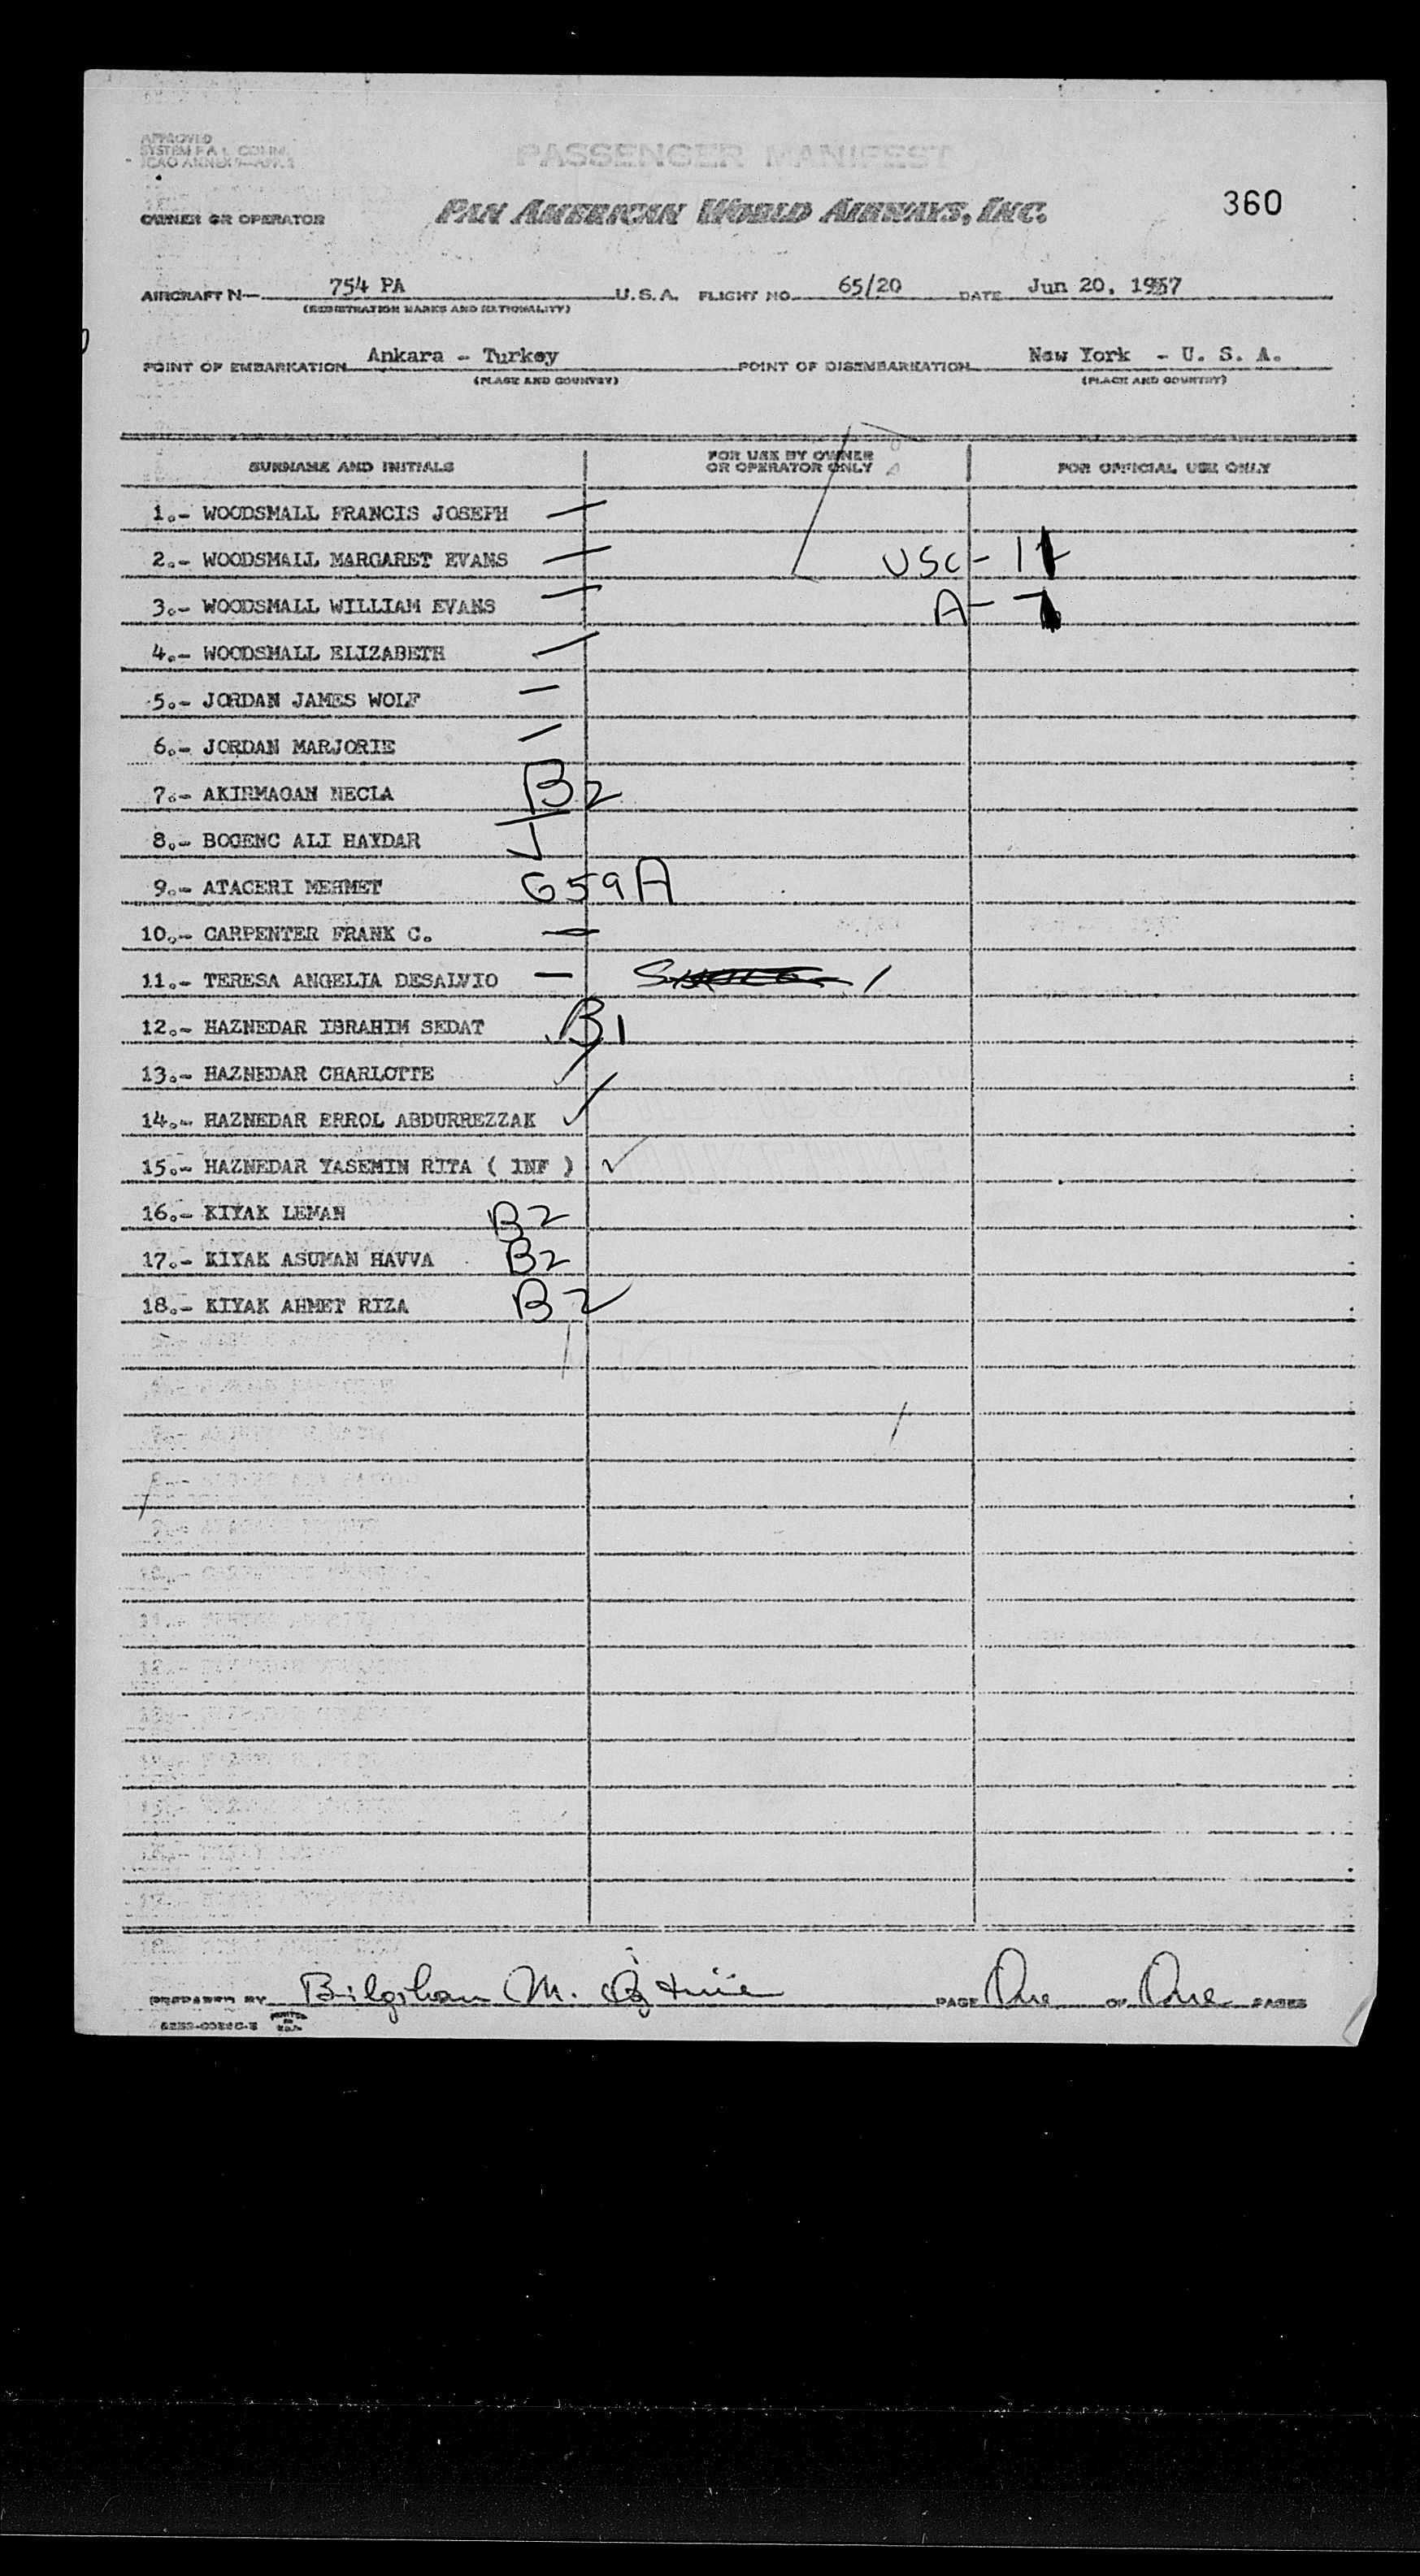 APPROVED
SYSTEM F A L COMM.
ICAO ANNEX 9—APP. 3
PASSENGER MANIFEST
OWNER OR OPERATOR PAN AMERICAN WORLD AIRWAYS, INC. 360
AIRCRAFT N— 754 PA U.S.A. FLIGHT NO. 65/20 DATE Jun 20, 1957
(REGISTRATION MARKS AND NATIONALITY)
POINT OF EMBARKATION Ankara - Turkey POINT OF DISEMBARKATION New York - U. S. A.
(PLACE AND COUNTRY) (PLACE AND COUNTRY)
SURNAME AND INITIALS FOR USE BY OWNER OR OPERATOR ONLY FOR OFFICIAL USE ONLY
1.- WOODSMALL FRANCIS JOSEPH —
2.- WOODSMALL MARGARET EVANS — USC - 11
3.- WOODSMALL WILLIAM EVANS — A - 7
4.- WOODSMALL ELIZABETH —
5.- JORDAN JAMES WOLF —
6.- JORDAN MARJORIE —
7.- AKIRMAGAN NECLA B2
8.- BOGENC ALI HAYDAR J
9.- ATACERI MEHMET G59A
10.- CARPENTER FRANK C. —
11.- TERESA ANGELIA DESALVIO —
12.- HAZNEDAR IBRAHIM SEDAT B1
13.- HAZNEDAR CHARLOTTE ✓
14.- HAZNEDAR ERROL ABDURREZZAK ✓
15.- HAZNEDAR YASEMIN RITA ( INF ) ✓
16.- KIYAK LEMAN B2
17.- KIYAK ASUMAN HAVVA B2
18.- KIYAK AHMET RIZA B2
PREPARED BY Bilgihan M. PAGE One OF One PAGES